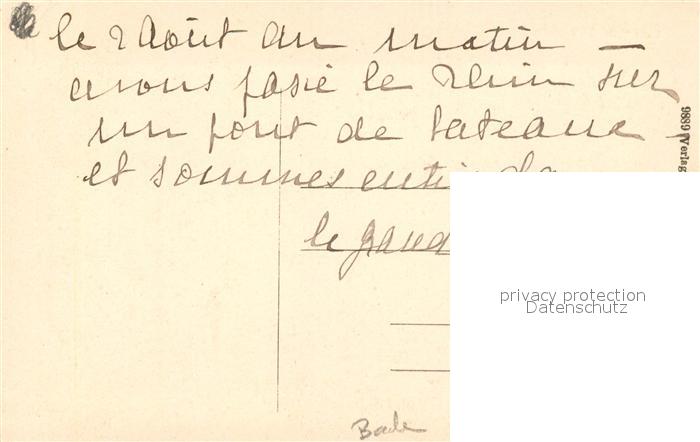 le 2 Août au matin —
avons passé le Rhin sur
un pont de bateaux —
et sommes
le grand
9889 Verlag
privacy protection
Datenschutz
Bade